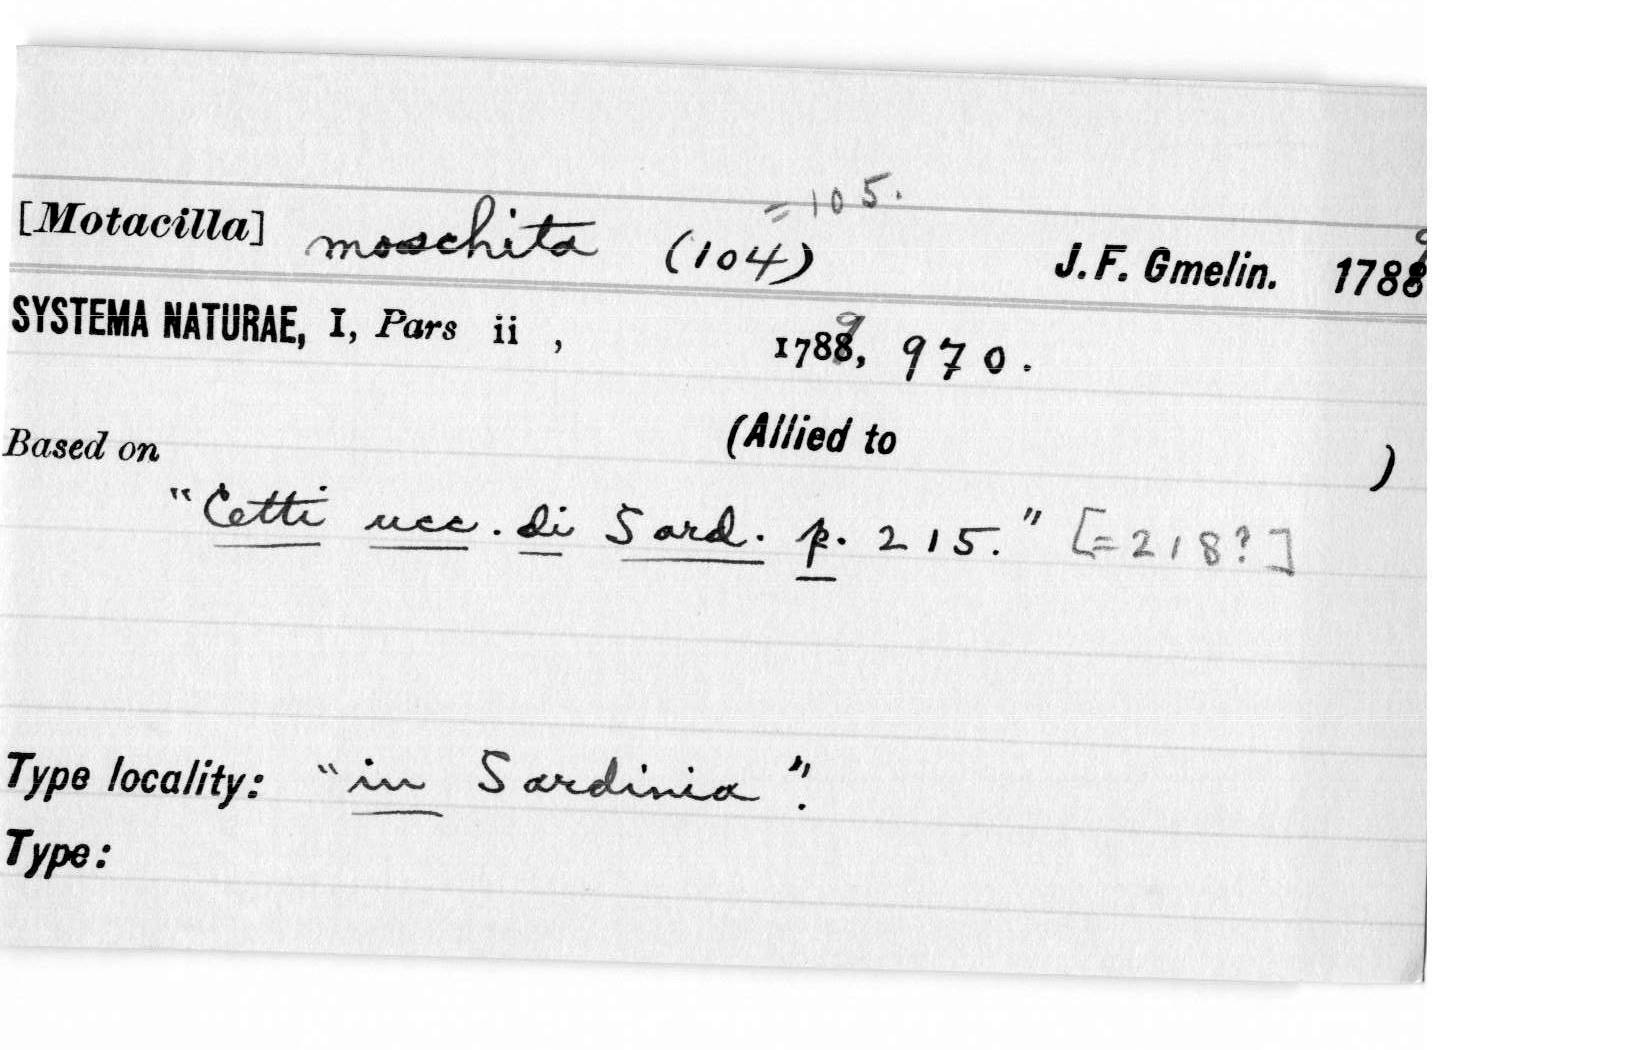 = 105.
[Motacilla] moschita (104) J. F. Gmelin. 1789
SYSTEMA NATURAE, I, Pars ii , 1789, 970.
Based on (Allied to )
"Cetti ucc. di Sard. p. 215." [=218?]
Type locality: "in Sardinia".
Type: